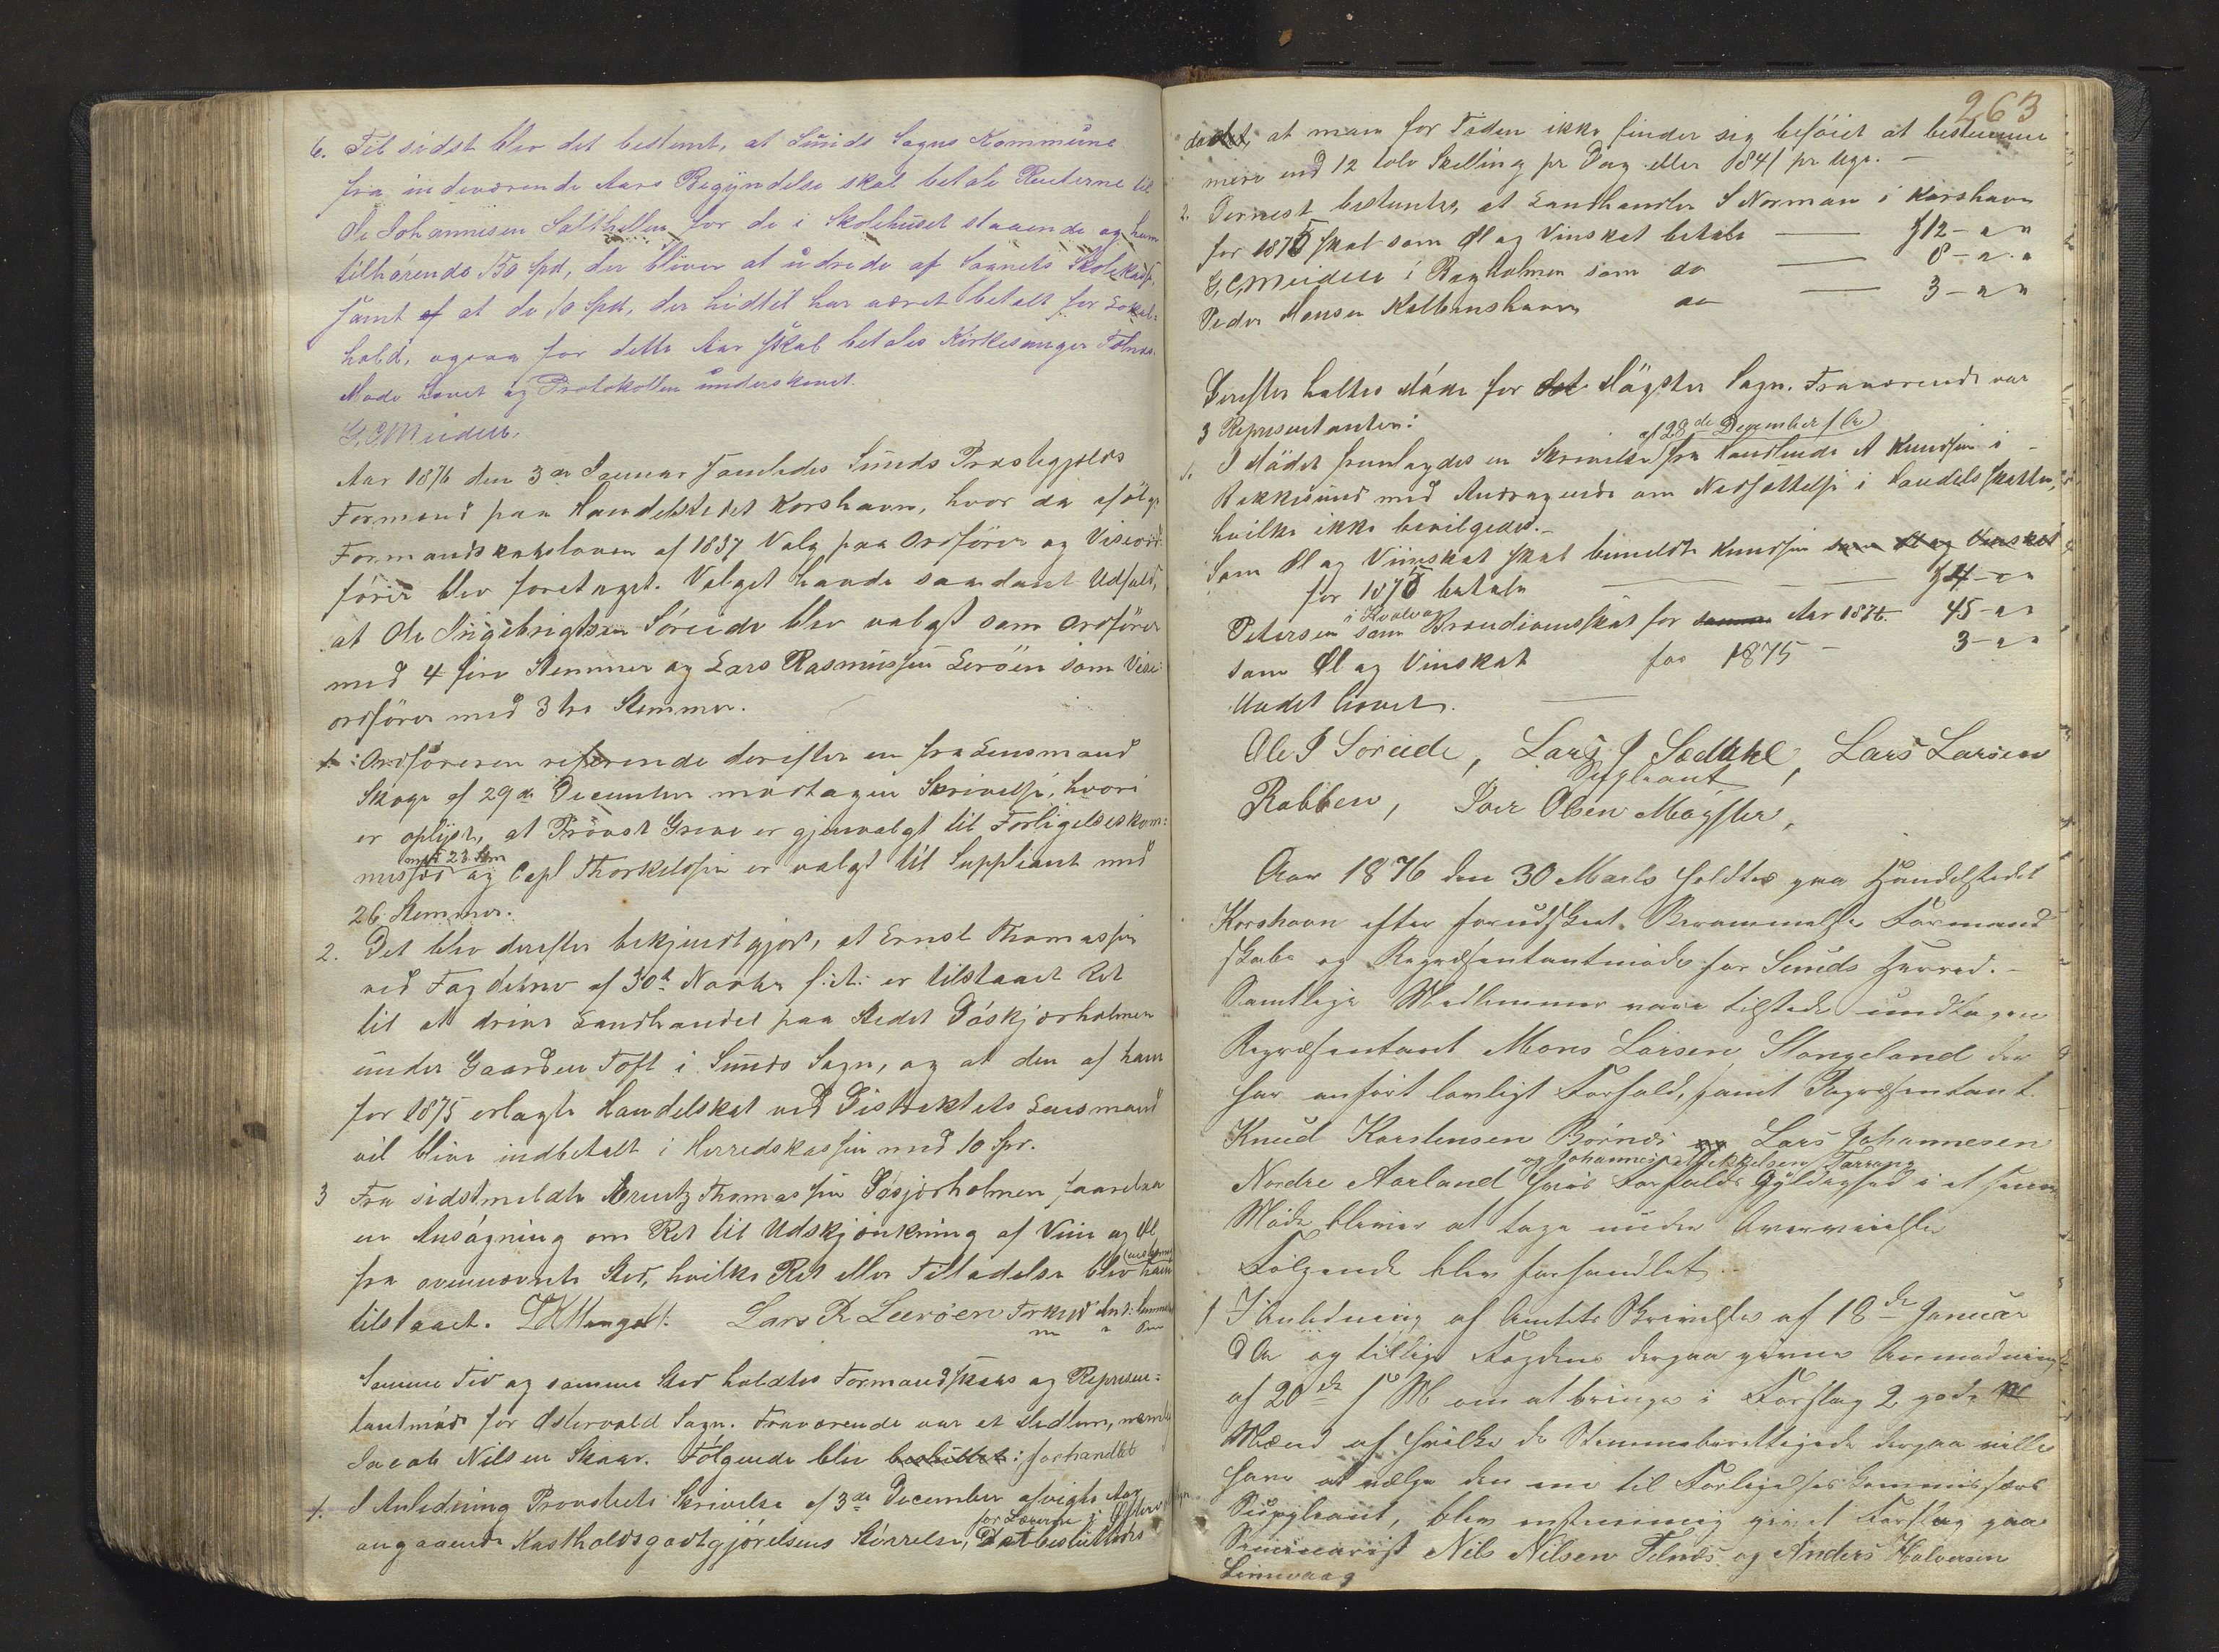 6. Til sidst blev det bestemt, at Sunds Sogns Kommune
fra indeværende Aars Begyndelse skal betale Renterne til
Ole Johannesen Salthellen for de i Skolehuset staaende og ham
tilhørende 150 Spd, der bliver at udrede af Sognets Skolekasse,
samt af at de 10 Spd, der hidtil har været betalt for Lokal-
hold, ogsaa for dette Aar skal betales Kirkesanger Telnæs.
Møde hævet og Protokollen underskrevet.
G, C Meidell.
Aar 1876 den 3de Januar samledes Sunds Præstegjelds
Formænd paa Handelstedet Korshavn, hvor da ifølge
Formandskabsloven af 1837 Valg paa Ordfører og Viseord-
fører blev foretaget. Valget havde saadant Udfald,
at Ole Ingebrigtsen Søreide blev valgt som Ordfører
med 4 fire Stemmer og Lars Rasmussen Lerøen som Vise-
ordfører med 3 tre Stemmer.
1. Ordføreren refererede derefter en fra Lensmand
Skage af 29de December modtagen Skrivelse, hvori
er oplyst, at Provst Greve er gjenvalgt til Forligelseskom:
med 23 Stm
missær og Capl Thorkildsen er valgt til Suppliant med
26 Stemmer.
2. Det blev derefter bekjendtgjort, at Ernst Thomassen
ved Fogdebrev af 30te Novbr f: A: er tilstaaet Ret
til at drive Landhandel paa Stedet Døskjærholmen
under Gaarden Toft i Sunds Sogn, og at den af ham
for 1875 erlagte Handelskat ved Distriktets Lensmand
vil blive indbetalt i Herredskassen med 10 Spr.
3 Fra sidstmeldte Erntz Thomassen Døsjørholmen faarelaa
en Ansøgning om Ret til Udskjænkning af Viin og Øl
fra ovennævnte Sted, hvilke Ret eller Tilladelse blev ham
tilstaaet. Lars R Leerøen
Samme Tid og samme Sted holdtes Formandskabs og Represen:
tantmøde for Østervold Sogn. Fraværende var et Medlem, nemlig
Jacob Nilsen Skaar. Følgende blev besluttet: forhandlet
1. I Anledning Provstiets Skrivelse af 3de December afvigte Aar
for Lærerne i
angaaende Kostholdsgodtgjørelsens Størrelse, Det besluttedes
263
da det, at man for Tiden ikke finder sig beføiet at bestemme
mere end 12 tolv Skilling pr Dag eller 84 / pr Uge. –
2. Dernest bestemtes, at Landhandler S Norman i Korshavn
for 1875 skal som Øl og Vinskat betale — 12 – " "
G, C, Meidell i Bagholmen som do — 8 – " "
Peder Hansen Kalbenshavn do — 3 – " "
Derefter holdtes Møde for det Møgster Sogn. Fraværende var
3 Representanter:
af 28de December f Ar
1. I Mødet fremlagdes en Skrivelse fra Handlende A Knudsen i
Bekkesund med Andragende om Nedsættelse i Handelsskatten,
hvilke ikke bevilgedes.–
Som Øl og Viinskat skal bemeldte Knudsen som Øl og Vinskat
for 1875 betale — 4 – " "
i Hvalvog
Petersen som Brændevinsskat for samme Aar 1876. 45 – " "
som Øl og Vinskat for 1875 – 3 – " "
Mødet hævet.
Ole I Søreide, Lars J Sædahl, Lars Larsen
Supleant
Rabben, Iver Olsen Møgster,
Aar 1876 den 30 Marts holdtes paa Handelstedet
Korshavn efter forudskeet Berammelse Formand
skabs og Repræsentantmøde for Sunds Herred. –
Samtlige Medlemmer vare tilstede undtagen
Repræsentant Mons Larsen Stangeland der
har anført lovligt Forfald, samt Repræsentant
Knud Karstensen Børnæs og Lars Johannesen
og Johannes Mikkelsen Tarrang
Nordre Aarland hvis Forfalds Gyldighed i et senere
Møde bliver at tage under Overveielse
Følgende blev forhandlet. –
1 I Anledning af Amtets Skrivelse af 18de Januar
d A og tillige Fogdens derpaa givne Anmodning
af 20de f M om at bringe i Forslag 2 gode M
Mænd af hvilke de Stemmeberettigede derpaa ville
have at vælge den ene til Forligelses Commissærs
Suppleant, blev enstemmig givet Forslag paa
Seminarist Nils Nilsen Telnæs og Anders Halvorsen
Limevaag